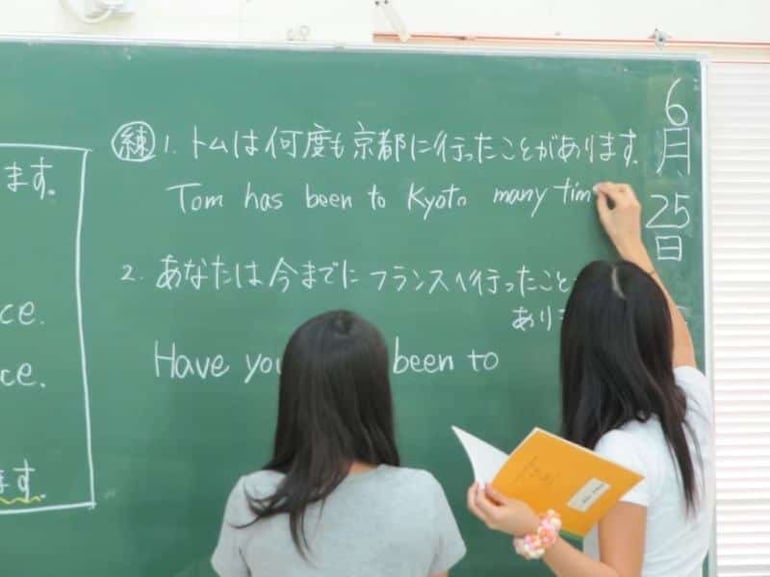 ます。
ce.
ce.
ます
練 1. トムは何度も京都に行ったことがあります。
Tom has been to Kyoto many tim
2. あなたは今までにフランスへ行ったこと
あり
Have you been to
6月25日